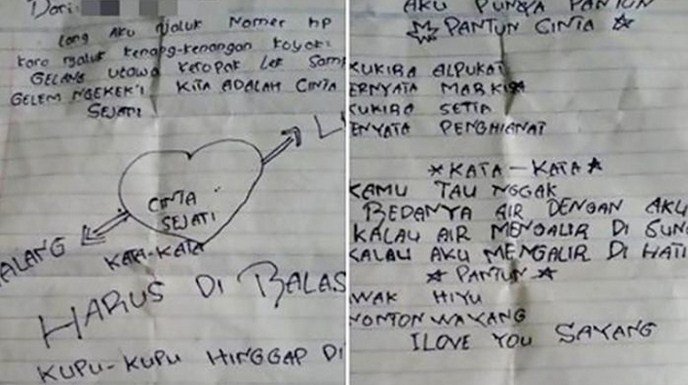 Dari:
Long AKU njaluk Nomer hp
karo njaluk kenang-kenangan koyok:
GELANG Utawa Ketopak Lek Samp
GELEM NGEKEK'I KITA ADALAH CINTA
SEJATI
CINTA
SEJATI
ALANG
KATA-KATA
HARUS DI BALAS
KUPU-KUPU HINGGAP DI
AKU PUNYA PANTUN
PANTUN CINTA
KUKIRA ALPUKAT
ERNYATA MARKISA
KUKIRA SETIA
ENYATA PENGHIANAT
KATA-KATA
KAMU TAU NGGAK
BEDANYA AIR DENGAN AKU
KALAU AIR MENGALIR DI SUN
KALAU AKU MENGALIR DI HATI
PANTUN
WAK HIYU
NONTON WAYANG
I LOVE YOU SAYANG